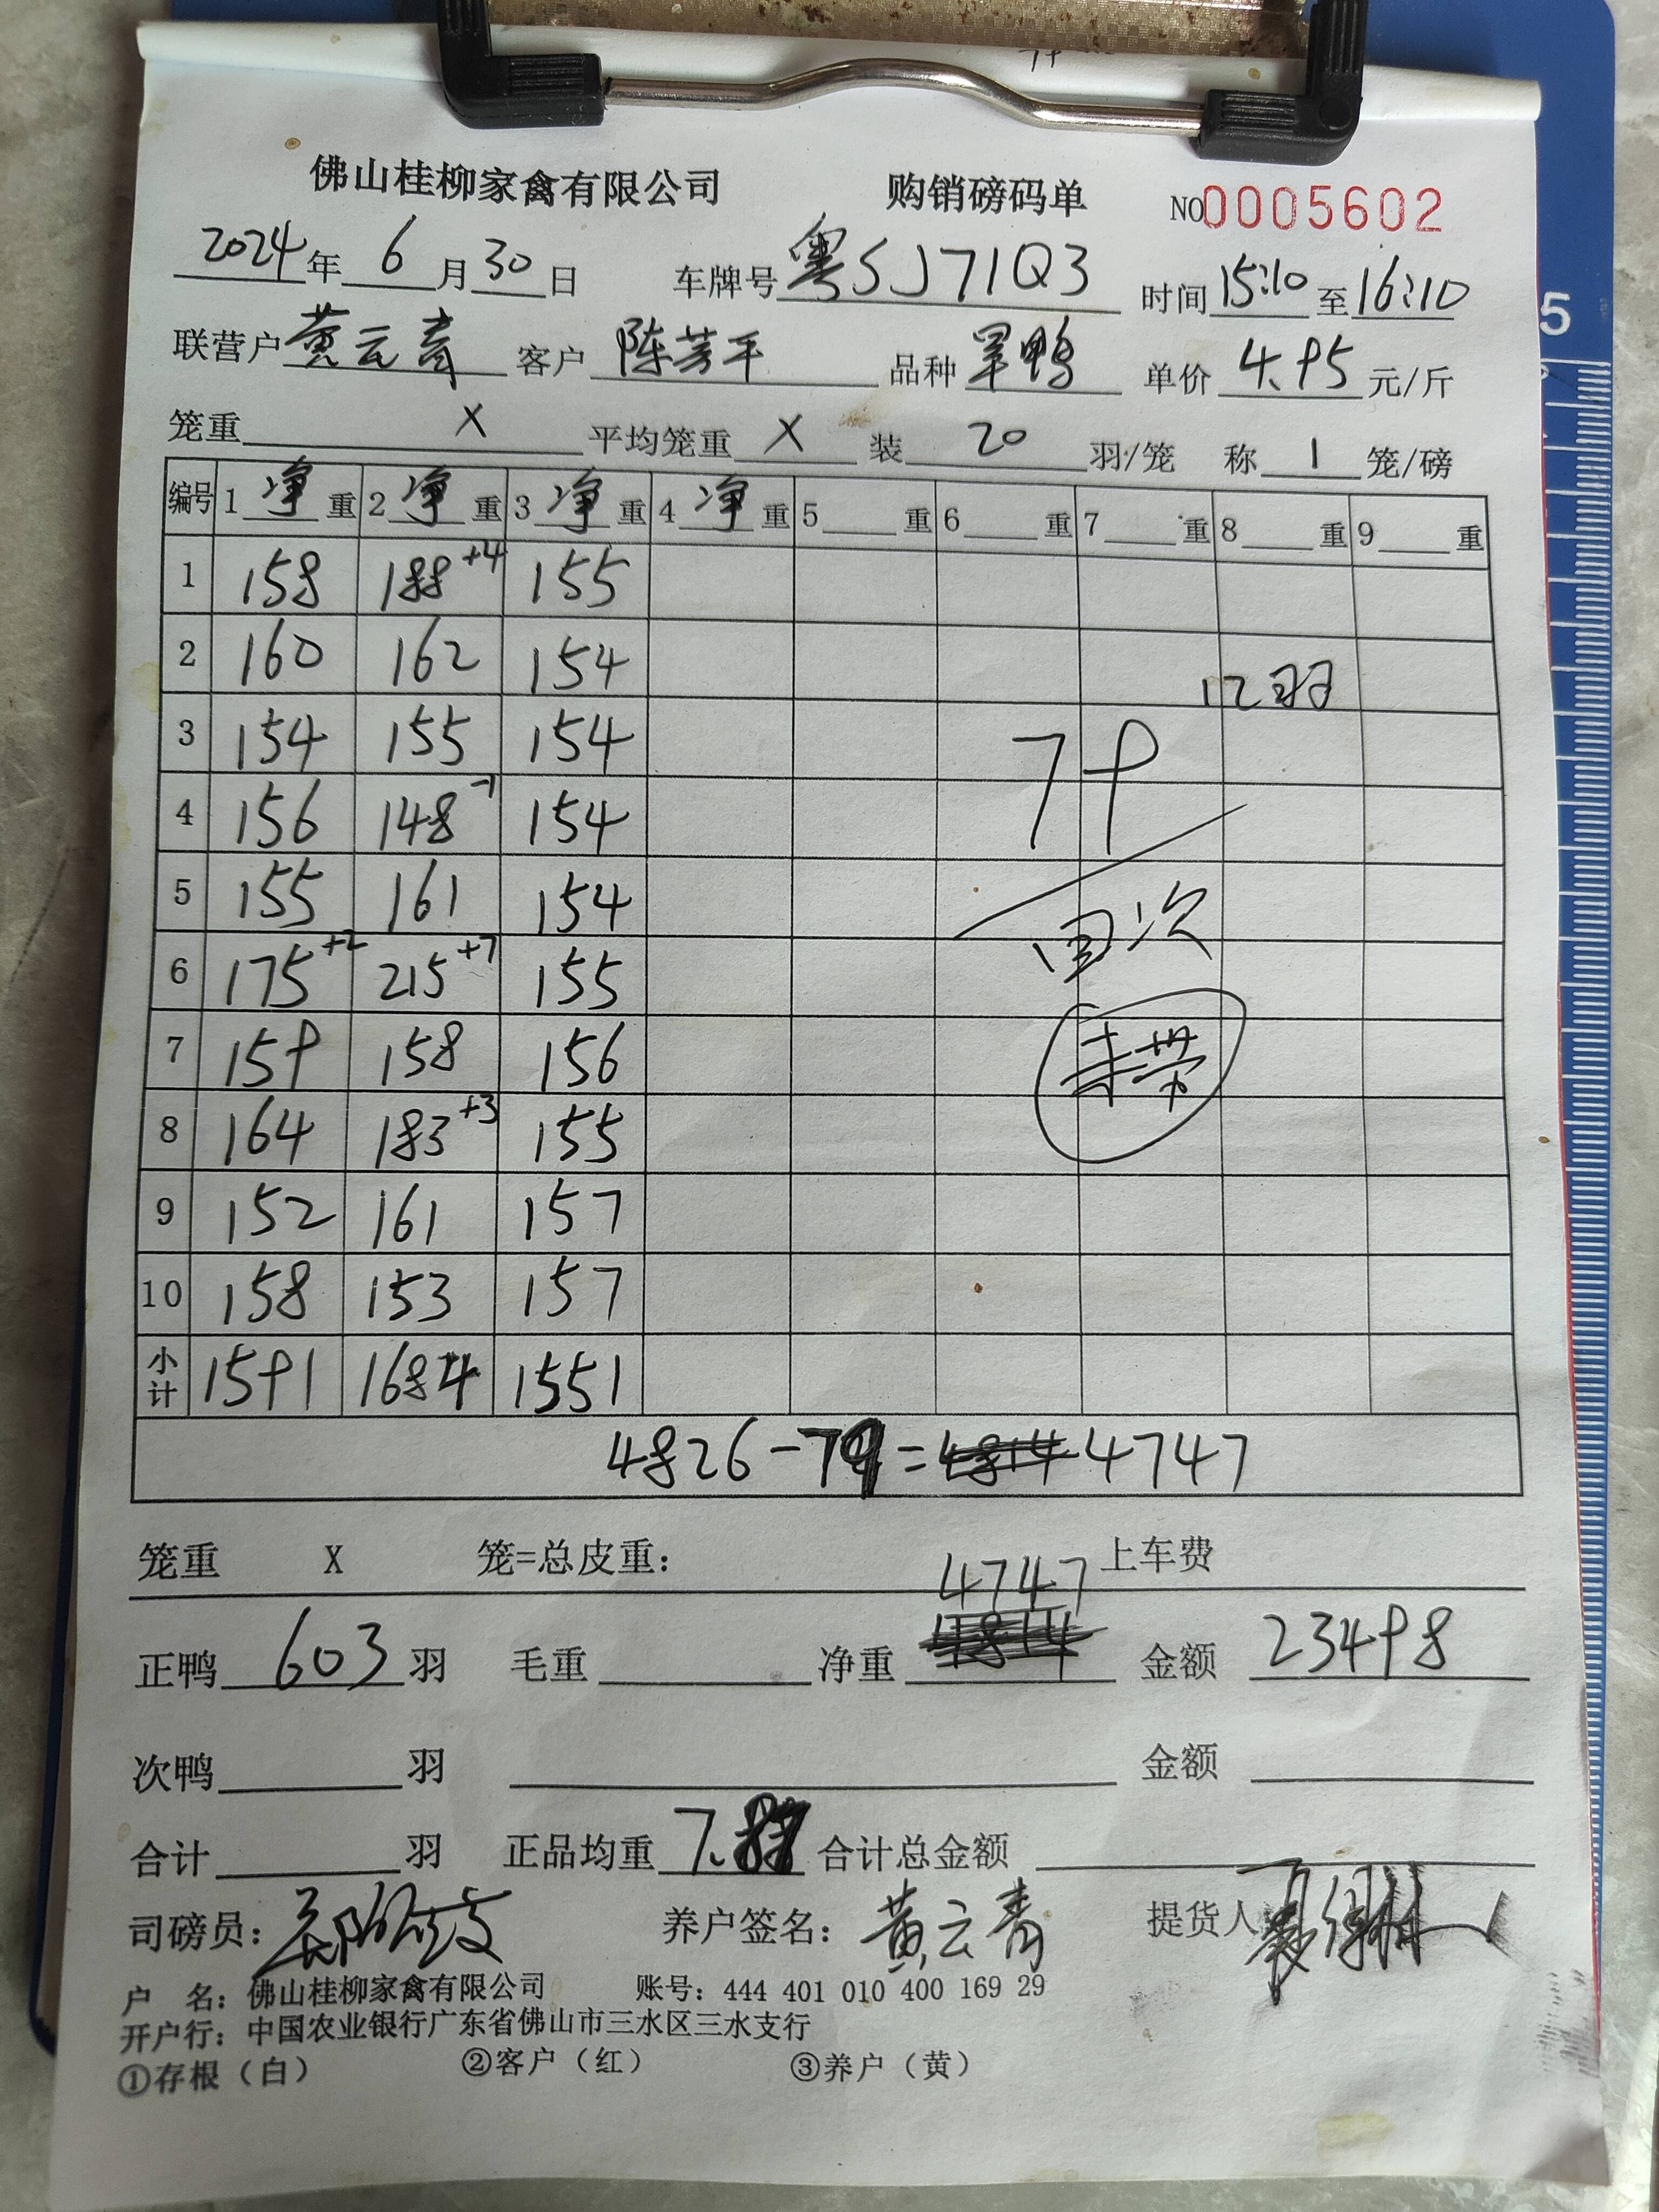 佛山桂柳家禽有限公司 购销磅码单 NO0005602
2024年 6 月 30 日 车牌号 粤SJ71Q3 时间 15:10 至 16:10
联营户 黄云青 客户 陈芳平 品种 旱鸭 单价 4.95 元/斤
笼重 X 平均笼重 X 装 20 羽/笼 称 1 笼/磅
编号 1 净 重 2 净 重 3 净 重 4 净 重 5 重 6 重 7 重 8 重 9 重
1 158 188 +4 155
2 160 162 154
12羽
3 154 155 154
79
4 156 148 -1 154
5 155 161 154
回次
6 175 +2 215 +7 155
7 159 158 156
8 164 183 +3 155
9 152 161 157
10 158 153 157
小计 1591 1684 1551
4826-79= 4747
笼重 X 笼=总皮重: 上车费
4747
正鸭 603 羽 毛重 净重 金额 23498
次鸭 羽 金额
合计 羽 正品均重 7. 合计总金额
司磅员: 养户签名: 黄云青 提货人
户 名: 佛山桂柳家禽有限公司 账号: 444 401 010 400 169 29
开户行: 中国农业银行广东省佛山市三水区三水支行
①存根(白) ②客户(红) ③养户(黄)
5